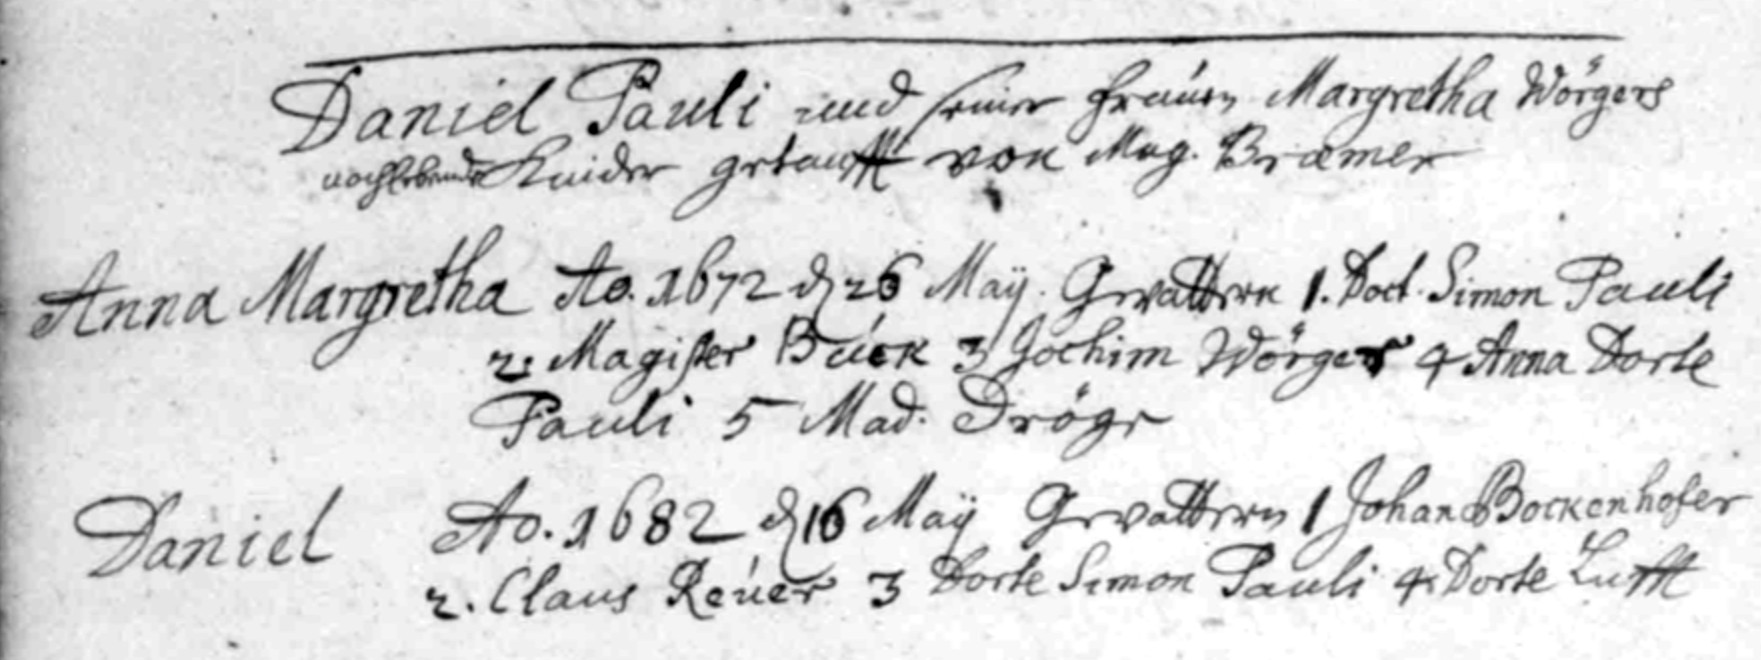 Daniel Pauli und seiner Frauen Margretha Wörgers
nachlebende Kinder getaufft von Mag. Bræmer
Anna Margretha Ao. 1672 d 26 Maÿ. Gevattern 1. Doct. Simon Pauli
2. Magister Búck 3 Jochim Wörger 4 Anna Dorte
Pauli 5 Mad. Dröge
Daniel Ao. 1682 d 16 Maÿ Gevattern 1 Johan Bockenhofer
2. Claus Reúer 3 Dorte Simon Pauli 4. Dorte Lufft